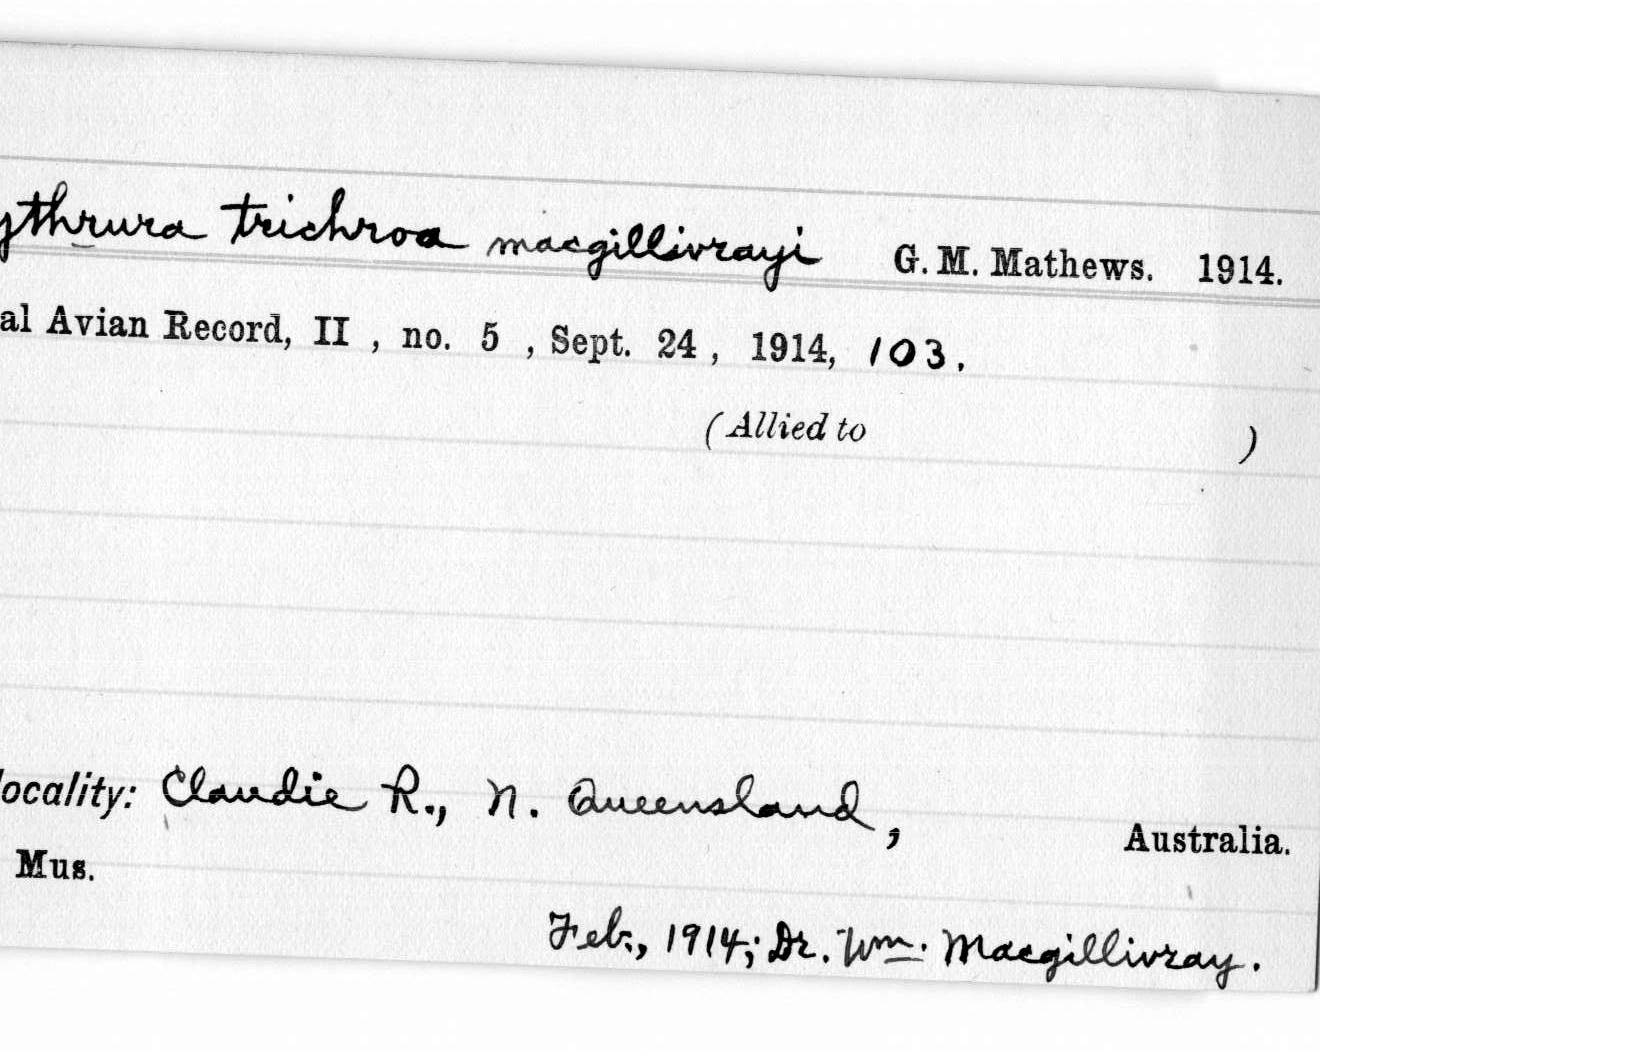 ythrura trichroa macgillivrayi G. M. Mathews. 1914.
al Avian Record, II , no. 5 , Sept. 24 , 1914, 103.
(Allied to )
locality: Claudie R., N. Queensland, Australia.
Mus.
Feb., 1914; Dr. Wm. Macgillivray.